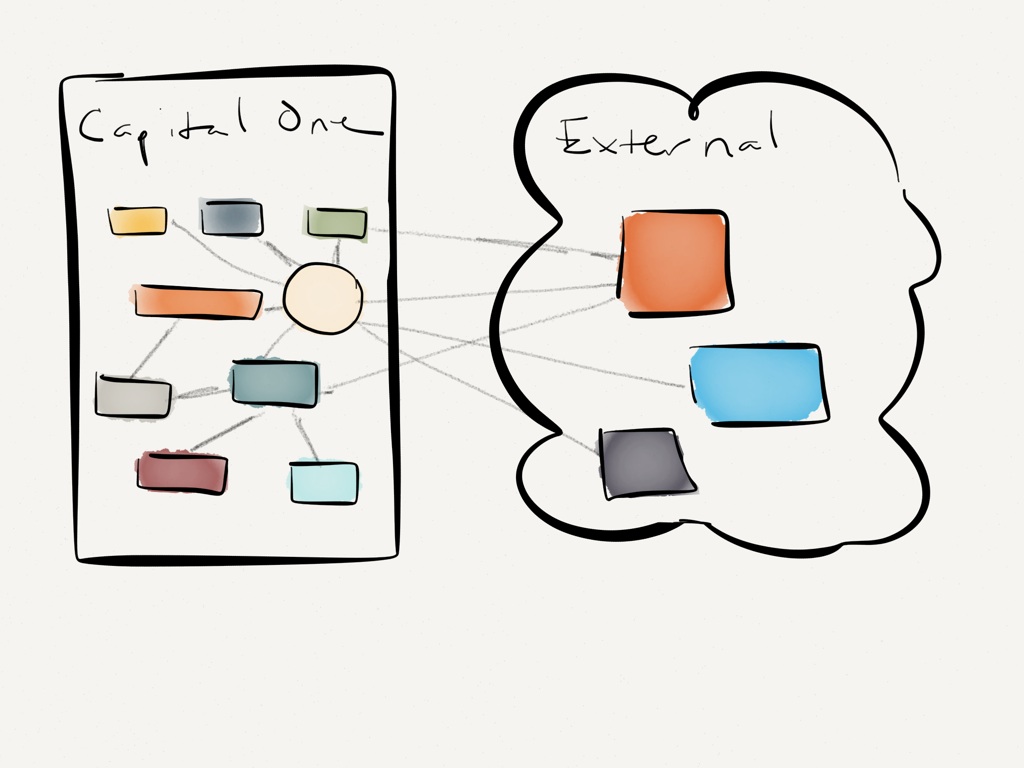 Capital One
External